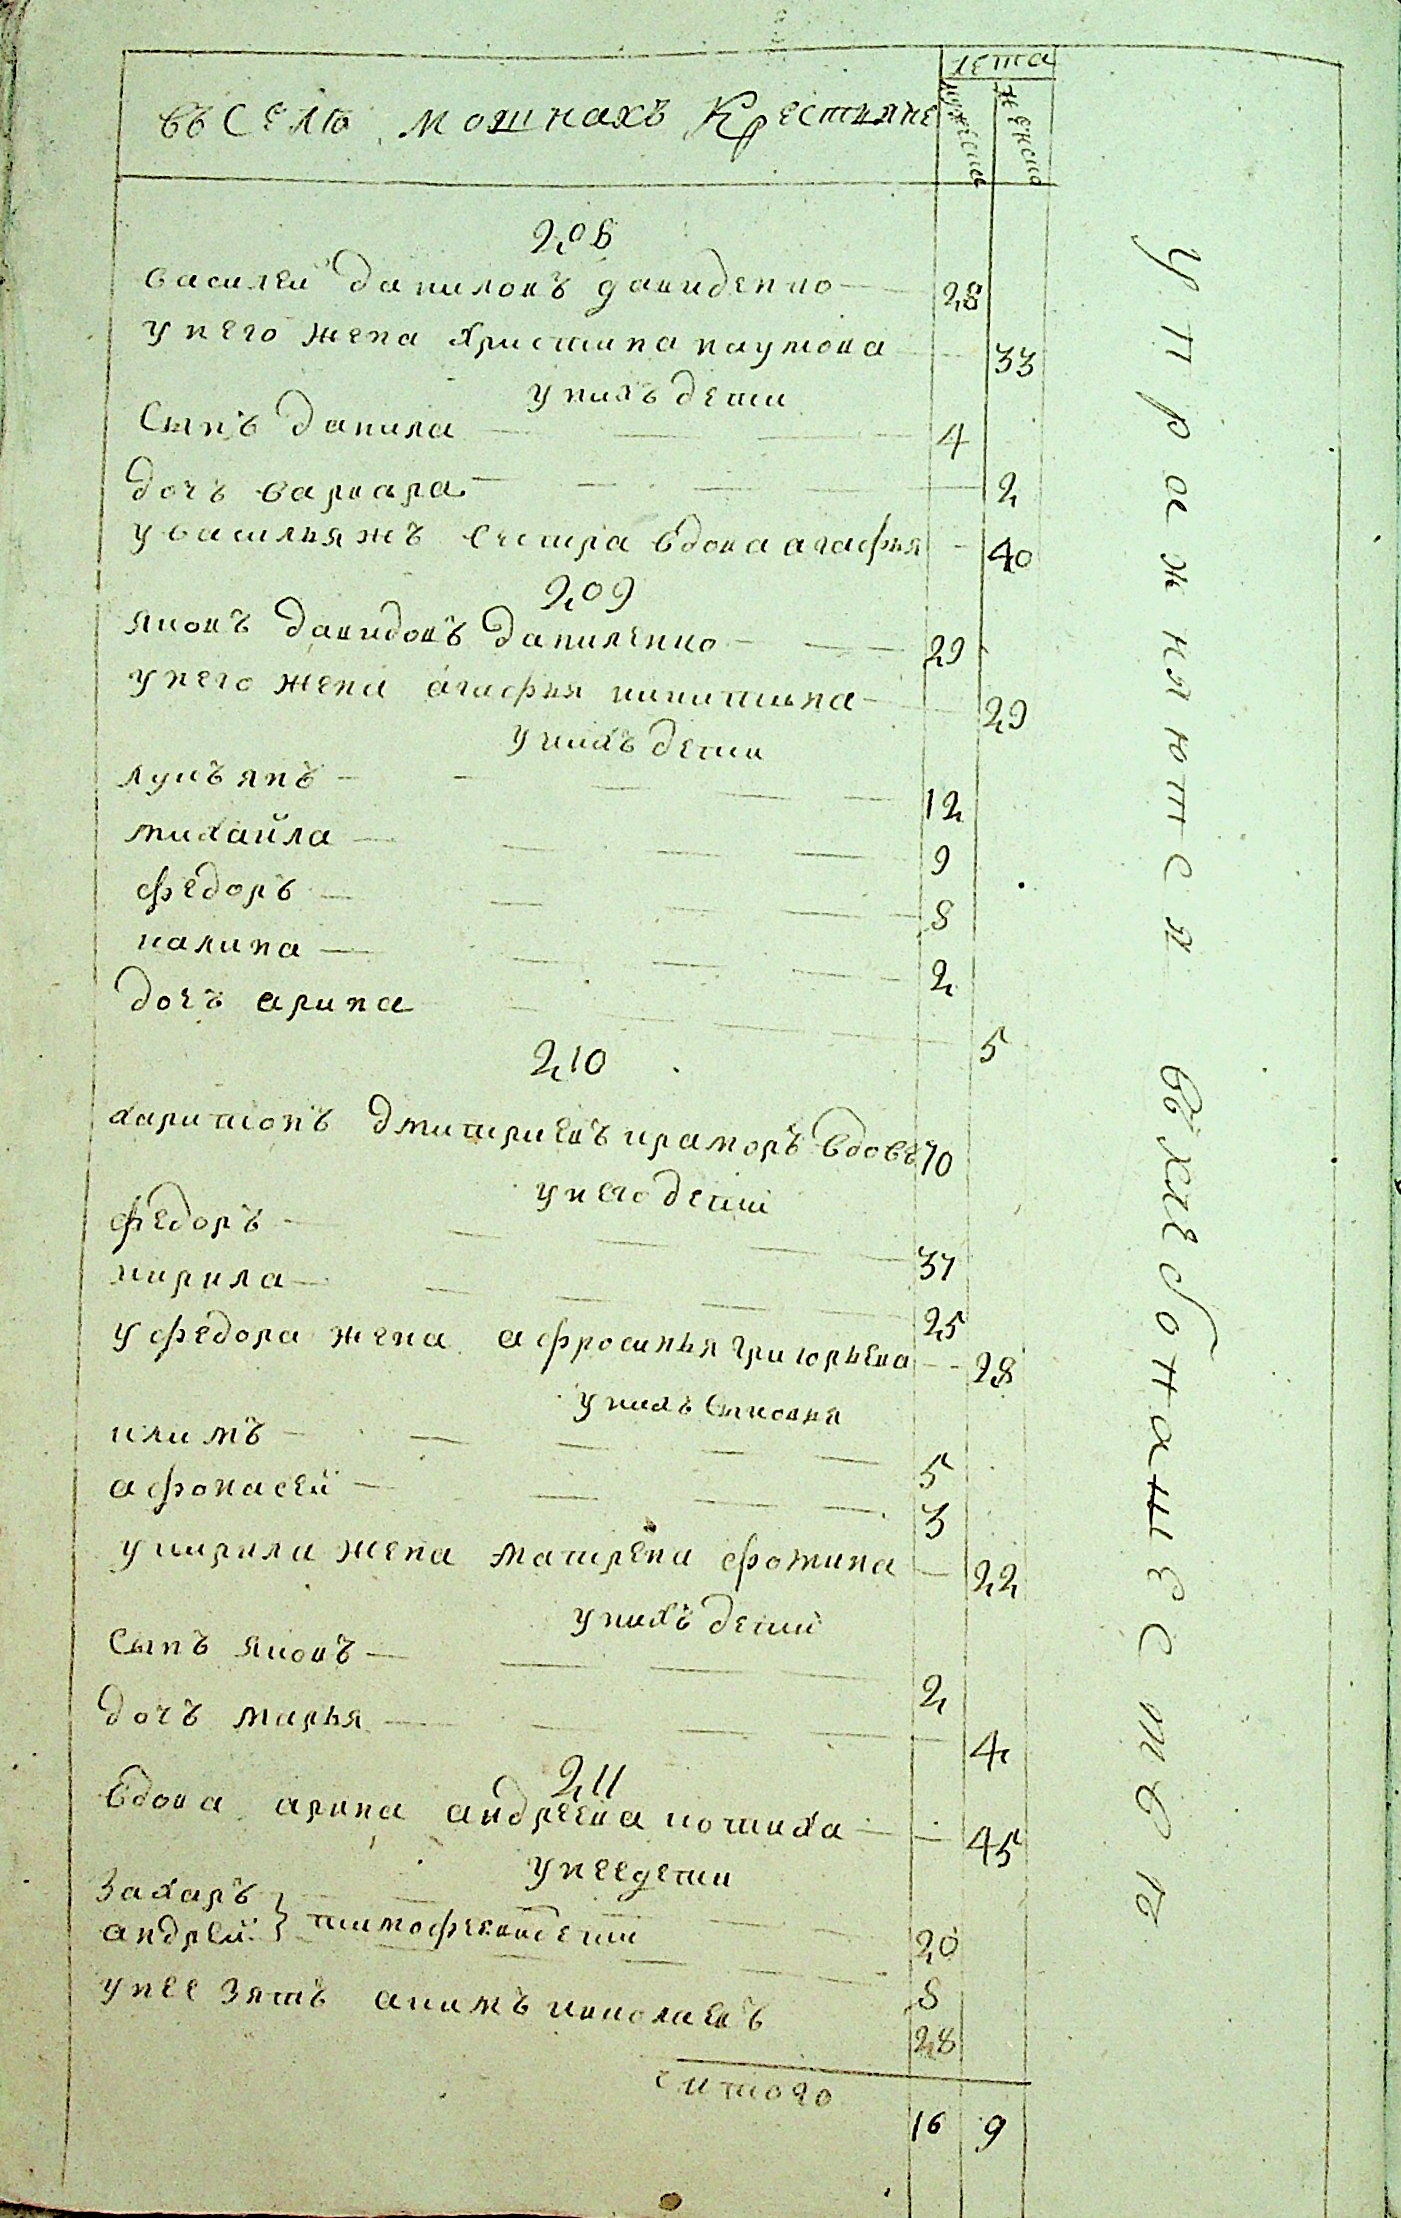 лета
въ селѣ мошнахъ Крестьяне
мужеска
женска
208
василей даниловъ давиденко 28
у него жена христина наумова 33
у нихъ дети
Сынъ данила 4
дочь варвара 2
у василья жъ сестра вдова агафья 40
209
яковъ давидовъ даниленко 29
у него жена агафья никитина 29
у нихъ дети
лукъянъ 12
михайла 9
федоръ 8
калина 2
дочъ арина 5
210
харитонъ дмитриевъ краморъ вдовъ 70
у него дети
федоръ 37
кирила 25
у федора жена афросинья григорьева 28
у нихъ сыновья
климъ 5
афонасей 3
у кирила жена матрена фомина 22
у нихъ дети
Сынъ яковъ 2
дочъ марья 4
211
вдова арина андреева 45
у нее дети
Захаръ 20
андрей 8
тимофеевы дети
у нее зять акимъ николаевъ 28
итого 16 9
упражняются въ хлебопашестве